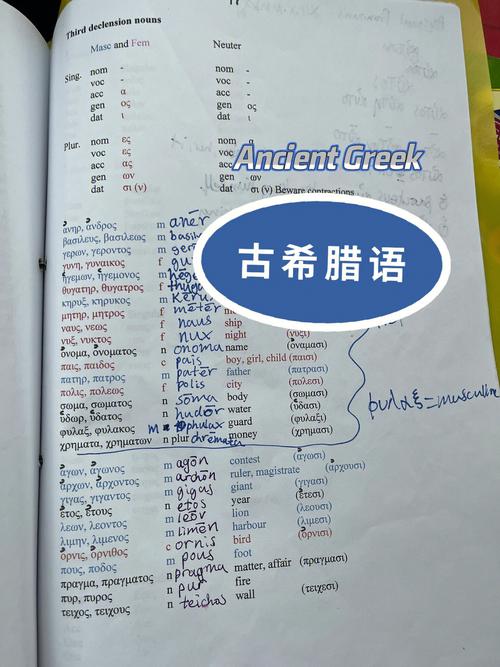 Third declension nouns
Masc and Fem Neuter
Sing. nom - nom -
voc - voc -
acc α acc -
gen ος gen ος
dat ι dat ι
Plur. nom ες nom α
voc ες voc
acc ας acc
gen ων gen ων
dat σι (ν) dat σι (ν) Beware contractions
Ancient Greek
古希腊语
ἀνηρ, ἀνδρος m anēr
βασιλευς, βασιλεως m
γερων, γεροντος m
γυνη, γυναικος f
ἡγεμων, ἡγεμονος m
θυγατηρ, θυγατρος f
κηρυξ, κηρυκος m
μητηρ, μητρος f mētēr
ναυς, νεως f naus ship
νυξ, νυκτος f nux night (νυξι)
ὀνομα, ὀνοματος n onoma name (ὀνομασι)
παις, παιδος c pais boy, girl, child (παισι)
πατηρ, πατρος m patēr father (πατρασι)
πολις, πολεως f polis city (πολεσι)
σωμα, σωματος n sōma body (σωμασι)
ὑδωρ, ὑδατος n hudōr water (ὑδασι)
φυλαξ, φυλακος m phulax guard (φυλαξι)
χρηματα, χρηματων n plur chrēmata money (χρημασι)
φυλαξ = musculine
ἀγων, ἀγωνος m agōn contest (ἀγωσι)
ἀρχων, ἀρχοντος m archōn ruler, magistrate (ἀρχουσι)
γιγας, γιγαντος m gigas giant (γιγασι)
ἐτος, ἐτους n etos year (ἐτεσι)
λεων, λεοντος m leōn lion (λεουσι)
λιμην, λιμενος m limēn harbour (λιμεσι)
ὀρνις, ὀρνιθος c ornis bird (ὀρνισι)
πους, ποδος m pous foot
πραγμα, πραγματος n pragma matter, affair (πραγμασι)
πυρ, πυρος n pur fire
τειχος, τειχους n teichos wall (τειχεσι)